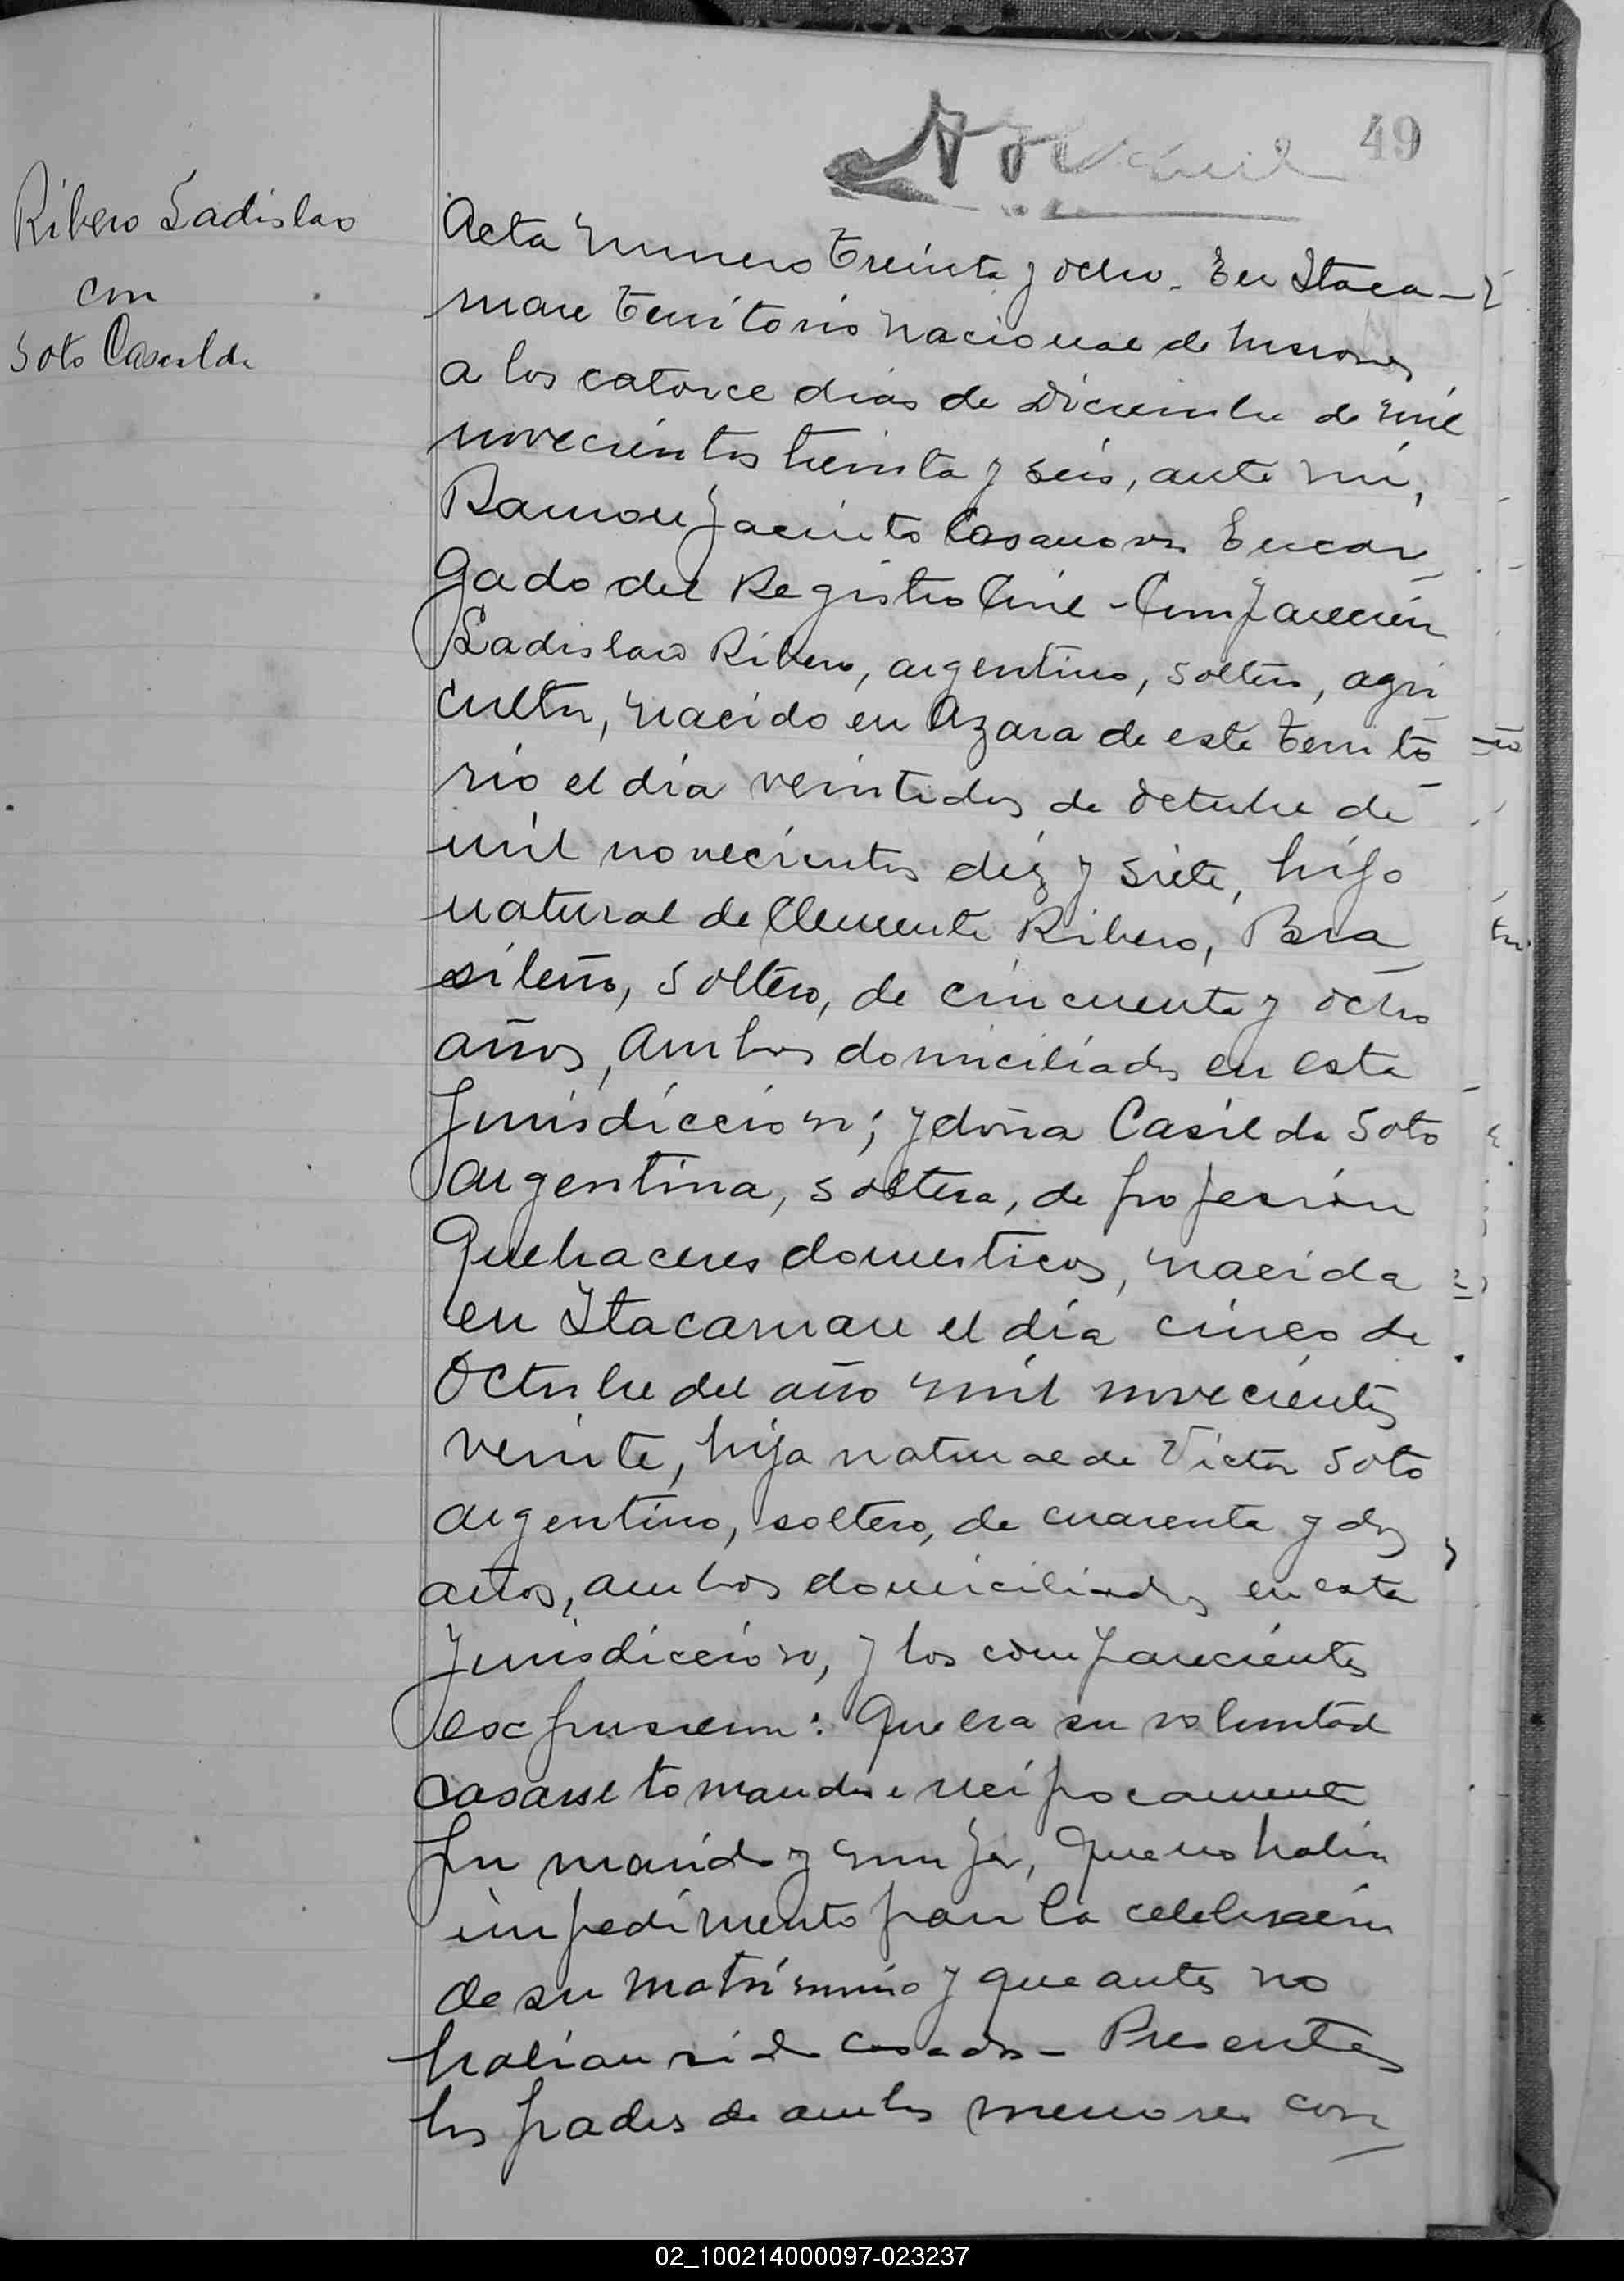 49
Ribero Ladislao
con
Soto Casilda
Acta numero treinta y ocho. En Itaca-
mare territorio nacional de Misiones
a los catorce dias de Diciembre de mil
novecientos treinta y seis, ante mi,
Ramon Jacinto Casanova Encar
gado del Registro Civil - Comparecien
Ladislao Ribero, argentino, soltero, agri
cultor, nacido en Azara de este territo
rio el día veintidos de octubre de
mil novecientos diez y siete, hijo
natural de Clemente Ribero, Bra
sileño, soltero, de cincuenta y ocho
años, ambos domiciliados en esta
Jurisdiccion; y doña Casilda Soto
argentina, soltera, de profesion
Quehaceres domesticos, nacida
en Itacaruare el día cinco de
Octubre del año mil novecientos
veinte, hija natural de Victor Soto
argentino, soltero, de cuarenta y dos
años, ambos domiciliados en esta
Jurisdiccion, y los comparecientes
expusieron: Que era su voluntad
casarse tomandose reciprocamente
por marido y mujer, que no habia
impedimento para la celebracion
de su matrimonio y que antes no
habian sido casados - Presentes
los padres de ambos menores con
02_100214000097-023237